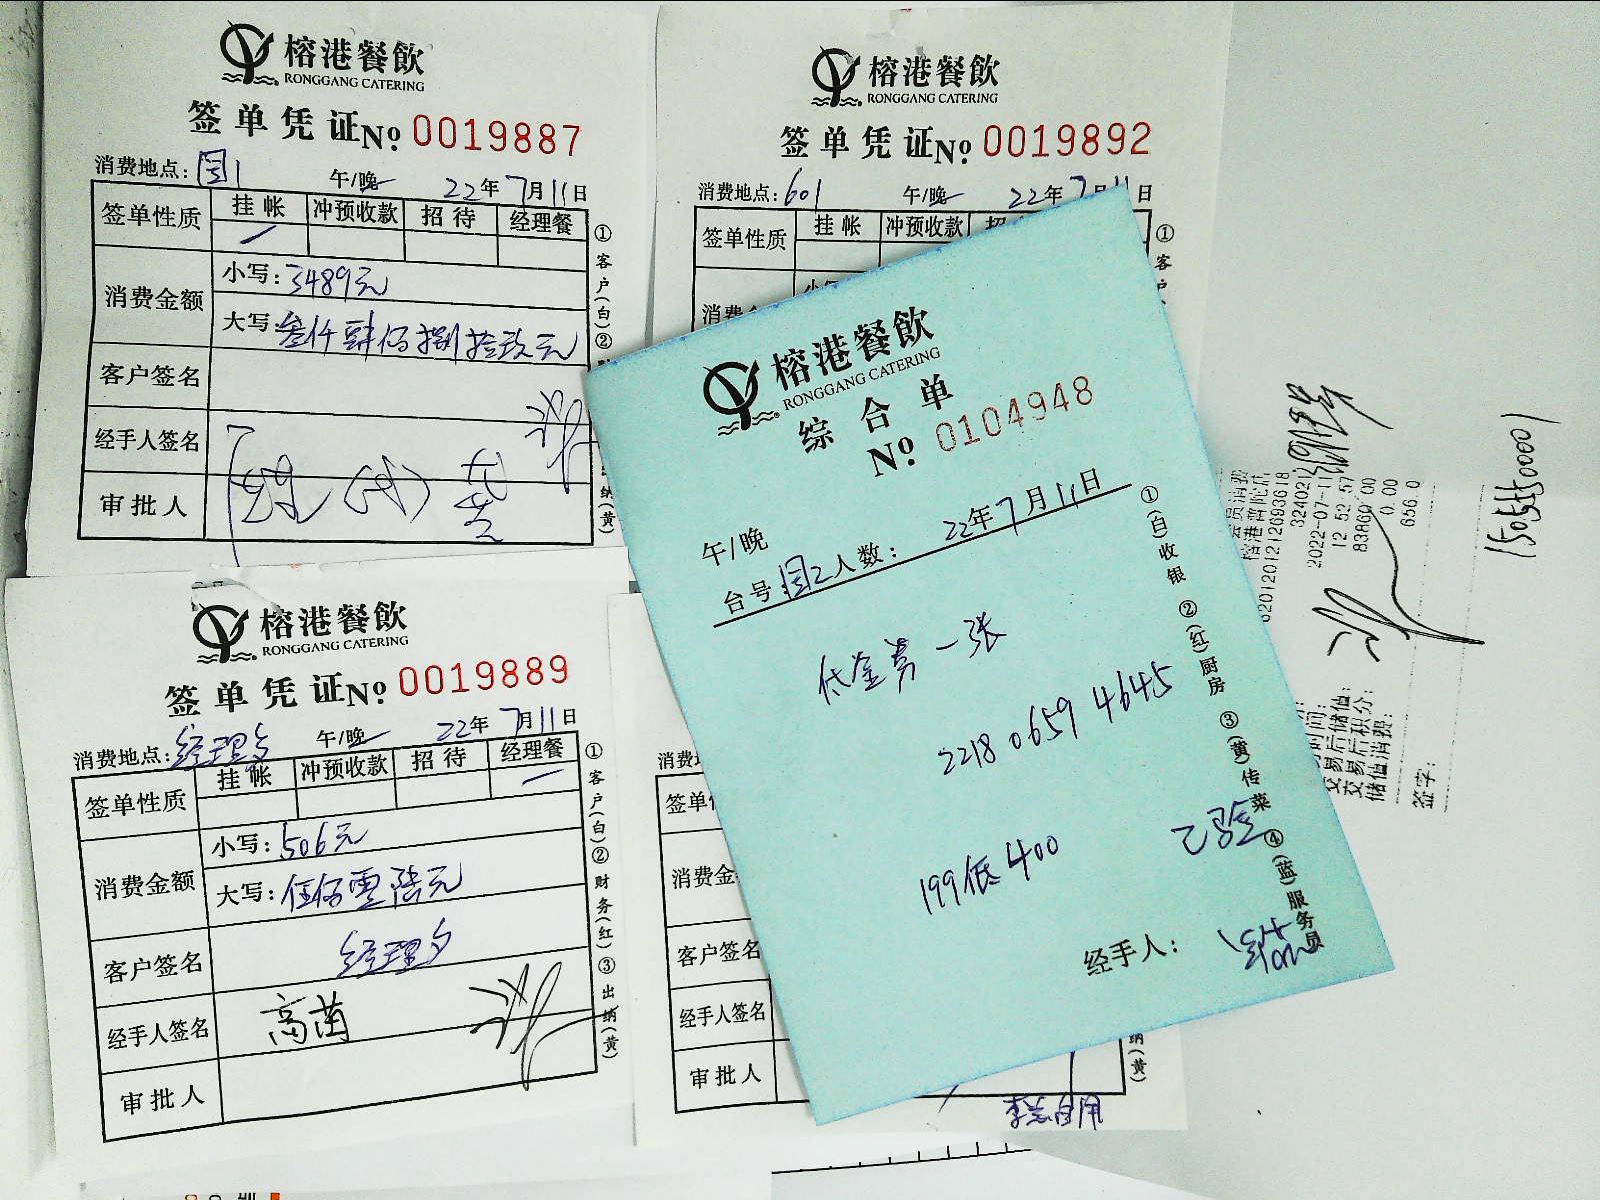 榕港餐飲
RONGGANG CATERING
签单凭证 No. 0019887
消费地点: 国1 午/晚 22年7月11日
签单性质 挂帐 冲预收款 招待 经理餐
消费金额
小写: 3489元
大写: 叁仟肆佰捌拾玖元
客户签名
经手人签名
审批人
①客户(白)②
纳(黄)
榕港餐飲
RONGGANG CATERING
签单凭证 No. 0019892
消费地点: 601 午/晚 22年7月11日
签单性质 挂帐 冲预收款
①客
榕港餐飲
RONGGANG CATERING
签单凭证 No. 0019889
消费地点: 经理夕 午/晚 22年7月11日
签单性质 挂帐 冲预收款 招待 经理餐
消费金额
小写: 506元
大写: 伍佰零陆元
客户签名 经理夕
经手人签名 高茵
审批人
①客户(白)②财务(红)③出纳(黄)
榕港餐飲
RONGGANG CATERING
综合单
No. 0104948
午/晚 22年7月11日
台号 国2 人数:
代金券一张
2218 0659 4645
199抵400
已验
经手人:
①(白)收银 ②(红)厨房 ③(黄)传菜 ④(蓝)服务员
消费
签单
消费金
客户签名
经手人签名
审批人
纳(黄)
会员消费
榕港普陀店
6201201212693618
2022-07-11
12:52:57
83860.00
0.00
656.0
交易后储值:
交易后积分:
储值消费:
签字:
15055550001